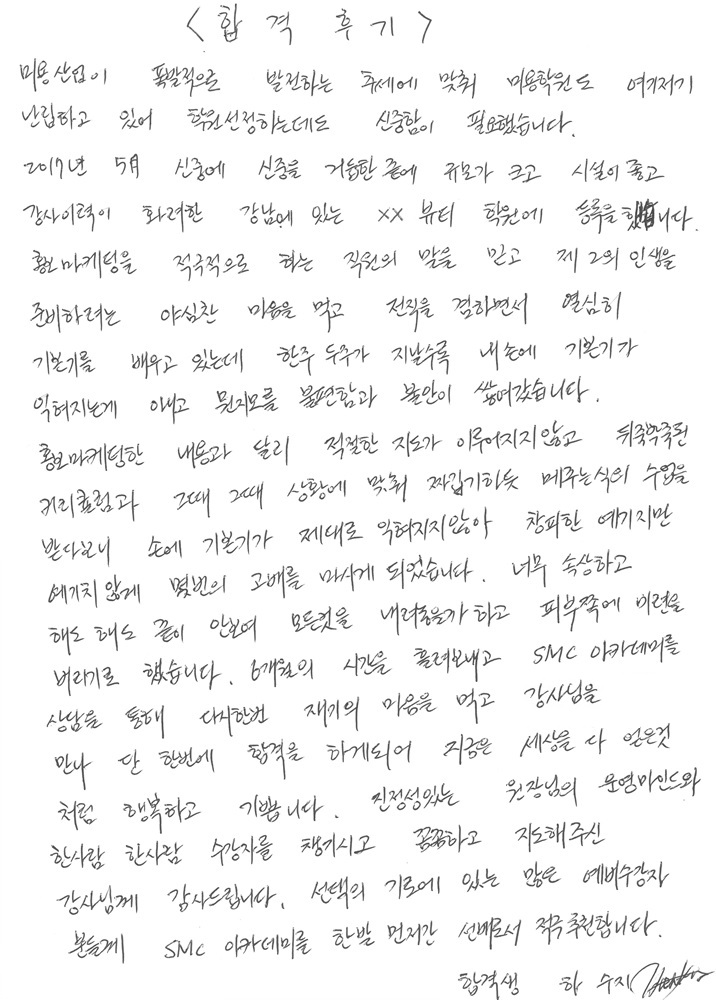 〈합격 후기〉
미용산업이 폭발적으로 발전하는 추세에 맞춰 미용학원도 여기저기
난립하고 있어 학원선정하는데도 신중함이 필요했습니다.
2017년 5月 신중에 신중을 거듭한 끝에 규모가 크고 시설이 좋고
강사이력이 화려한 강남에 있는 XX 뷰티 학원에 등록을 했습니다.
홍보마케팅을 적극적으로 하는 직원의 말을 믿고 제 2의 인생을
준비하려는 야심찬 마음을 먹고 전직을 결하면서 열심히
기본기를 배우고 있는데 한주 두주가 지날수록 내손에 기본기가
익혀지는게 아니고 뭔지모를 불편함과 불안이 쌓여갔습니다.
홍보마케팅한 내용과 달리 적절한 지도가 이루어지지않고 뒤죽박죽된
커리큘럼과 그때 그때 상황에 맞춰 짜깁기하듯 메꾸는식의 수업을
받다보니 손에 기본기가 제대로 익혀지지않아 창피한 얘기지만
예기치 않게 몇번의 고배를 마시게 되었습니다. 너무 속상하고
해도 해도 끝이 안보여 모든것을 내려놓을가 하고 피부쪽에 미련을
버리기로 했습니다. 6개월의 시간을 흘려보내고 SMC 아카데미를
상담을 통해 다시한번 재기의 마음을 먹고 강사님을
만나 단 한번에 합격을 하게되어 지금은 세상을 다 얻은것
처럼 행복하고 기쁩니다. 진정성있는 원장님의 운영마인드와
한사람 한사람 수강자를 챙기시고 꼼꼼하고 지도해주신
강사님께 감사드립니다. 선택의 기로에 있는 많은 예비수강자
분들께 SMC 아카데미를 한발 먼저간 선배로서 적극추천합니다.
합격생 하 수지